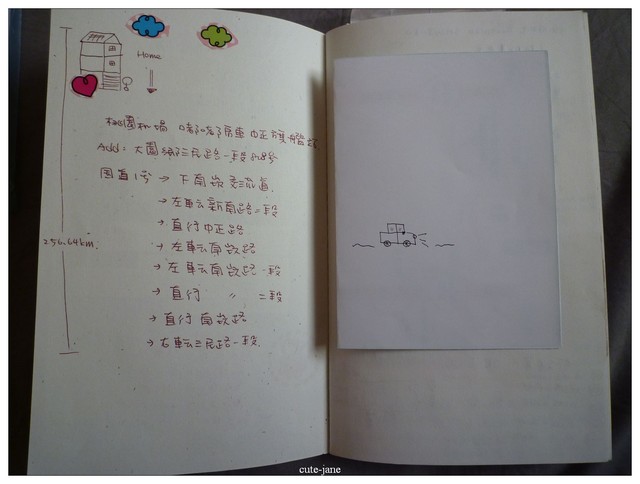 Home
桃園机場 嘟嘟房車中正旗艦店
Add: 大園鄉三民路一段508号
国道1号 → 下南崁交流道
→ 左轉新南路一段
→ 直行中正路
→ 左轉南崁路
→ 左轉南崁路一段
→ 直行 〃 二段
→ 直行南崁路
→ 右轉三民路一段.
256.64km.
cute-jane